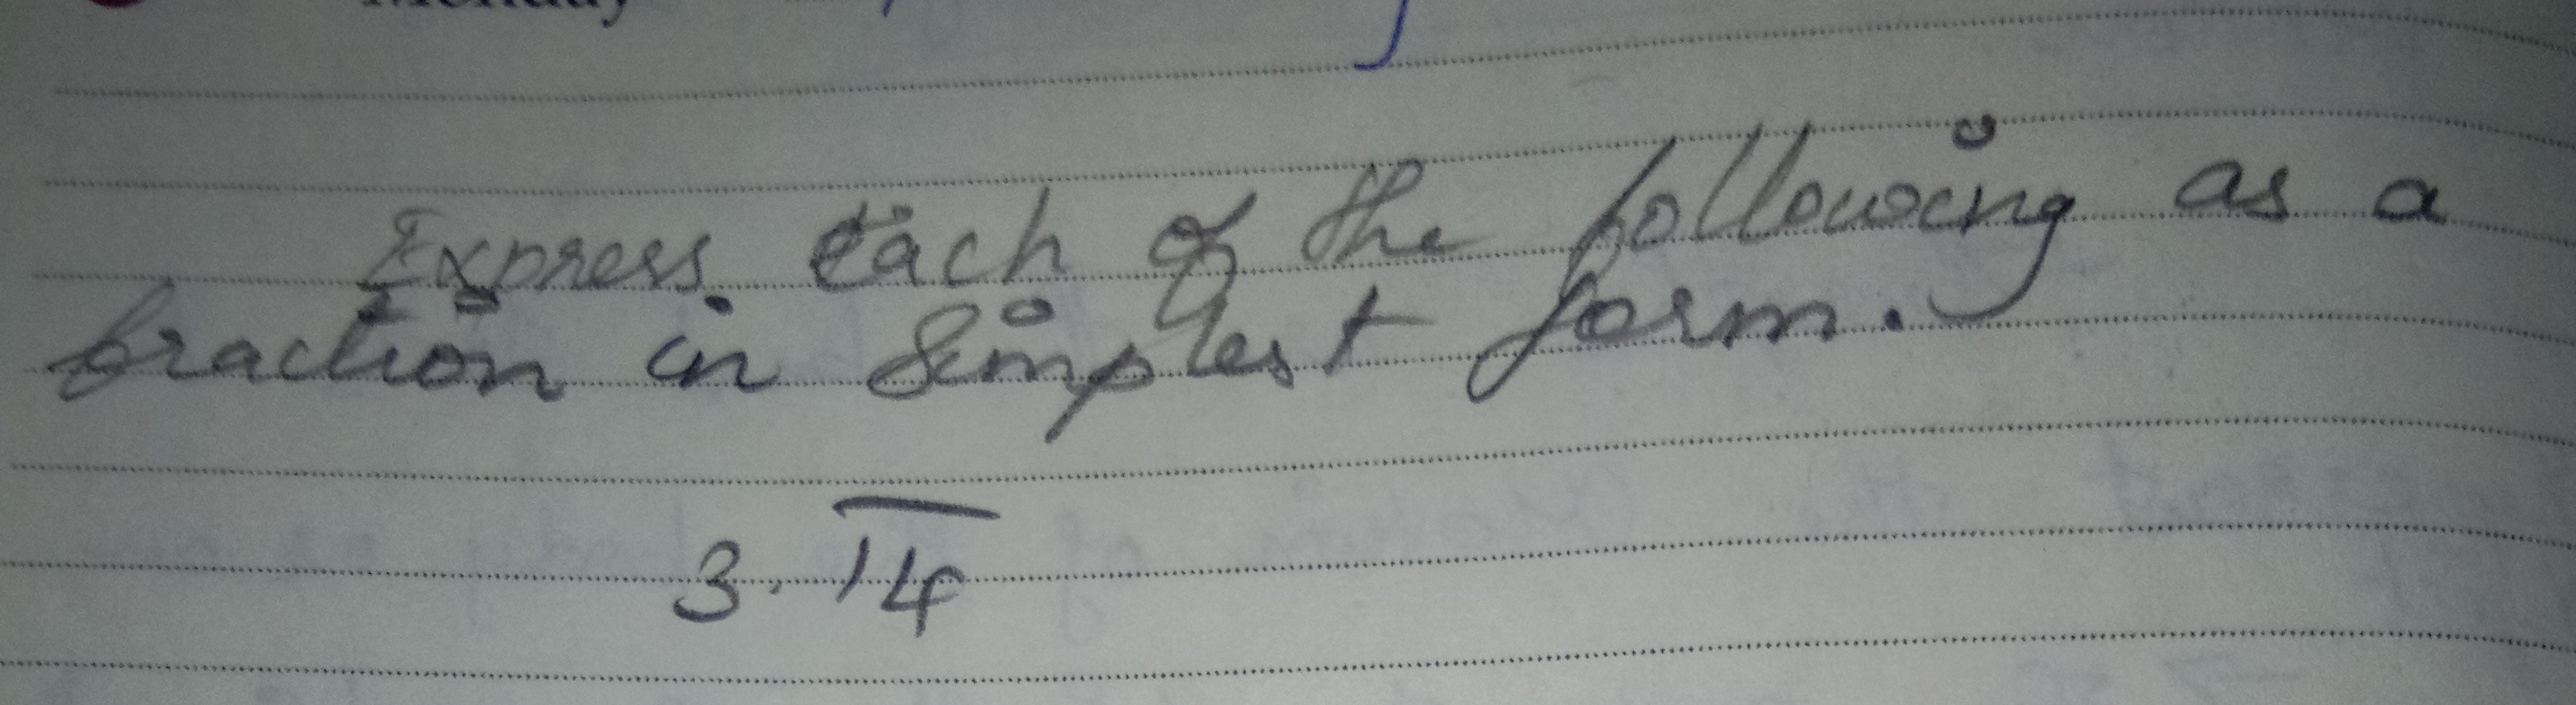 Monday
Express each of the following as a
fraction in simplest form.
3. 1̅4̅